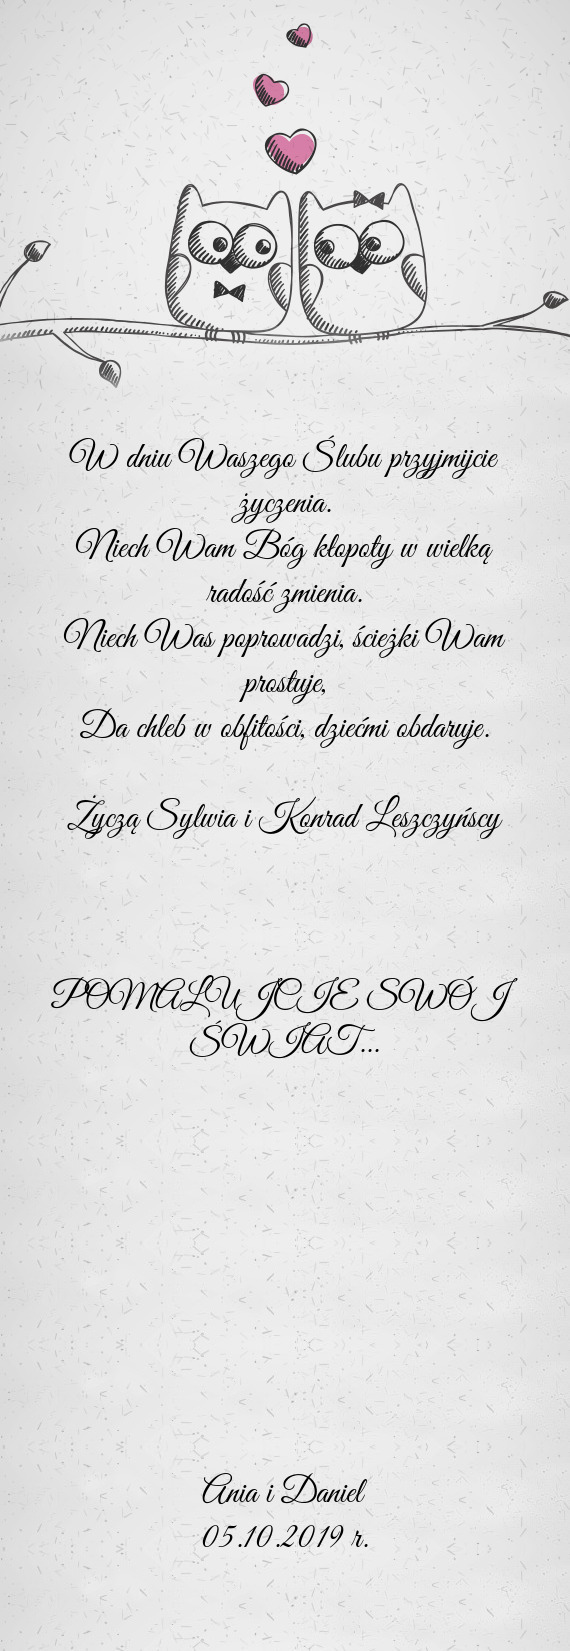 W dniu Waszego Ślubu przyjmijcie
życzenia.
Niech Wam Bóg kłopoty w wielką
radość zmienia.
Niech Was poprowadzi, ścieżki Wam
prostuje,
Da chleb w obfitości, dziećmi obdaruje.
Życzą Sylwia i Konrad Leszczyńscy
POMALUJCIE SWÓJ
ŚWIAT...
Ania i Daniel
05.10.2019 r.